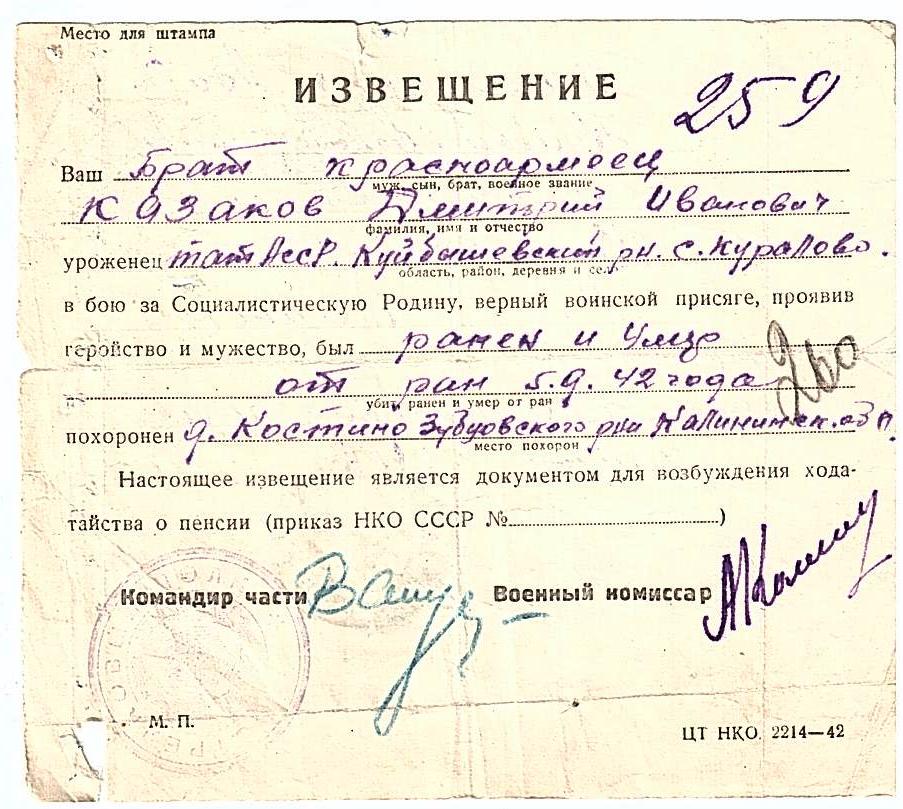 Место для штампа
ИЗВЕЩЕНИЕ
259
Ваш Брат красноармеец
муж, сын, брат, военное звание
Казаков Дмитрий Иванович
фамилия, имя и отчество
уроженец тат Асср. Куйбышевский рн. с. Куралово.
область, район, деревня и село
в бою за Социалистическую Родину, верный воинской присяге, проявив
геройство и мужество, был ранен и умер
от ран 5.9.42 года
убит, ранен и умер от ран
похоронен д. Костино Зубцовского рна Калининск. обл.
место похорон
Настоящее извещение является документом для возбуждения хода-
тайства о пенсии (приказ НКО СССР №)
Командир части Военный комиссар
М. П.
ЦТ НКО. 2214—42